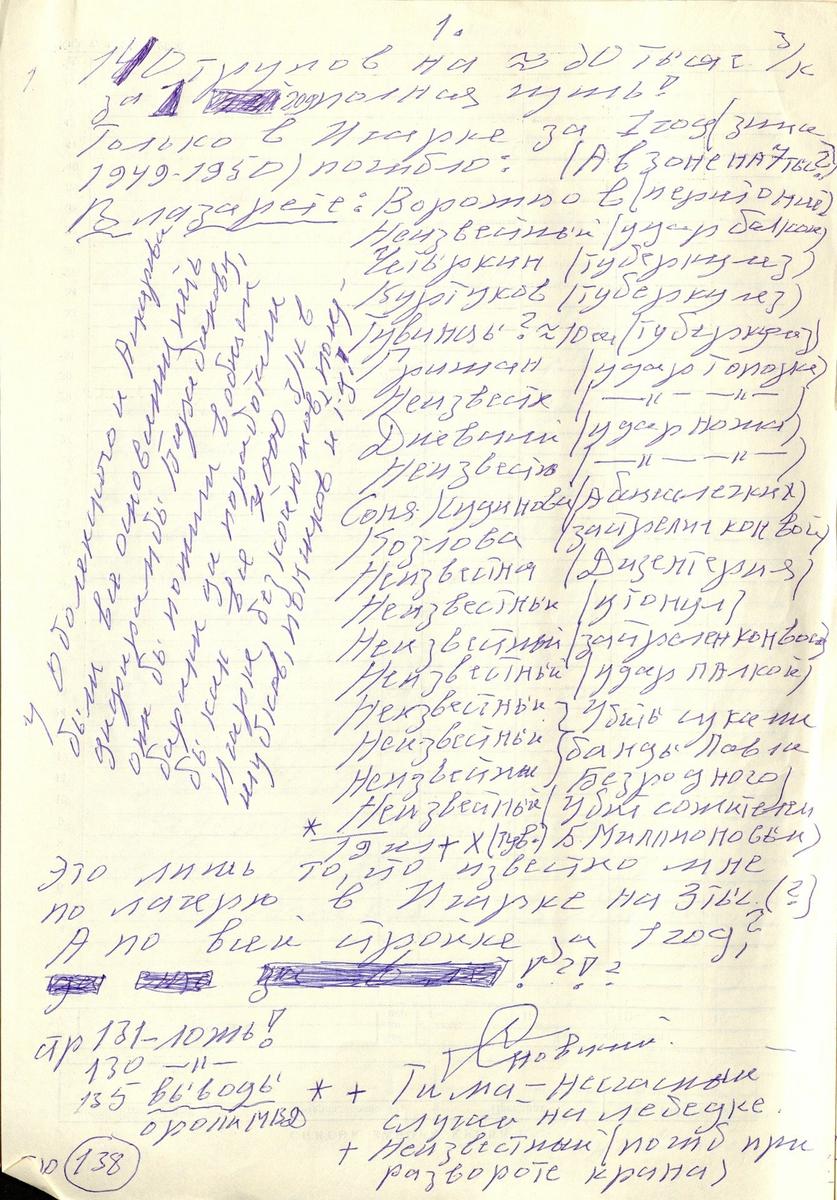 1.
140 трупов на ≈ 80 тысяч з/к
за 1 год полная чушь!
Только в Игарке за 1 год (зима
1949-1950) погибло: (А в зоне на 7 тыс?)
В лазарете: Ворожцов (перитонит)
Неизвестный (удар балкой)
Четыркин (туберкулез)
Куртуков (туберкулез)
Тувинцы? ≈ 10 ел (туберкулез)
Гришан (удар топора)
Неизвестн (—"— —"—)
Дневный (удар ножа)
Неизвестн (—"— —"—)
Соня Кудинова (Абсцесс легких)
Козлова (застрелил конвой)
Неизвестна (Дизентерия)
Неизвестный (утонул)
Неизвестный (застрелен конвоем)
Неизвестный (удар палкой)
Неизвестный } Убиты суками
Неизвестный } банды Павла
Неизвестный } Безродного)
Неизвестный (убит сожителем
* 19 чел + X (тув.) Б. Миллионовым)
У Оболенского и
были все основания петь
дифирамбы Барабанову,
они бы пожили в общем
бараке да поработали
бы как все 7000 з/к в
Игарке, без костюмов, полу-
шубков, пончиков и т.д.!
Это лишь то, что известно мне
по лагерю в Игарке на 3 тыс. (?)
А по всей стройке за 1 год?
!?!?
стр 131-ложь!
130 —"—
135 выводы
138
* + Тима - Несчастный
случай на лебедке.
+ Неизвестный (погиб при
развороте крана)